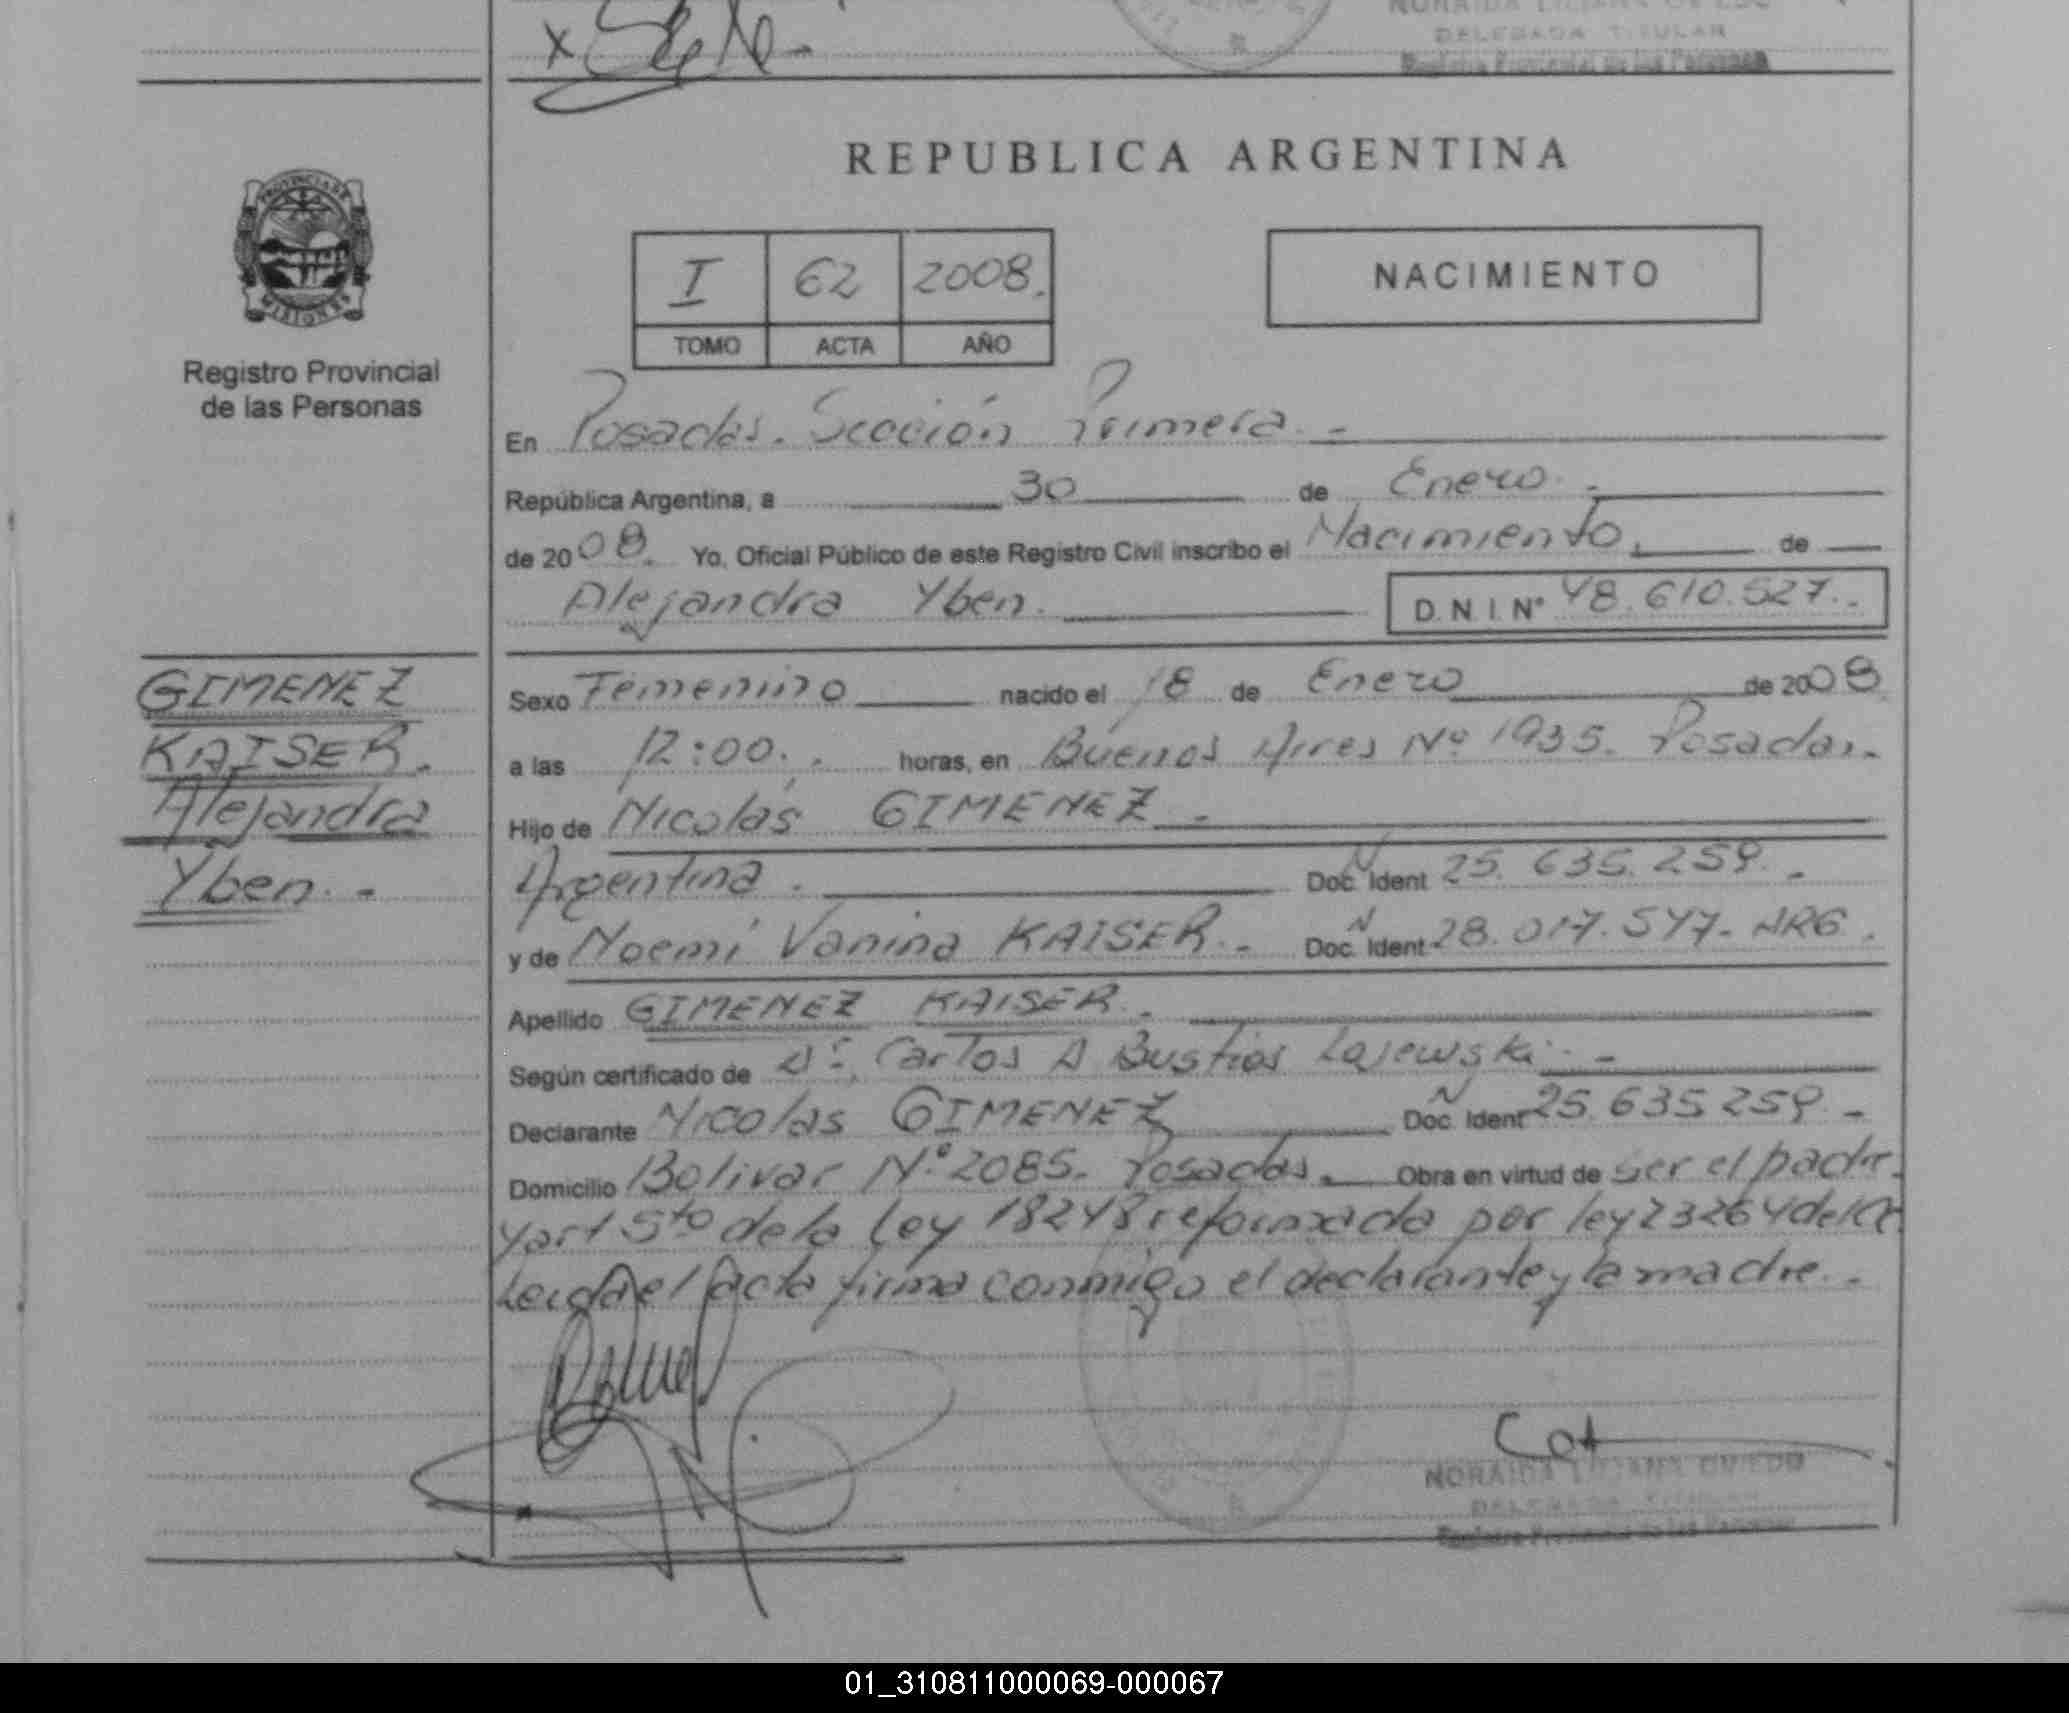 NORAIDA LILIANA OVIEDO
DELEGADA TITULAR
Registro Provincial de las Personas
PROVINCIA DE
MISIONES
Registro Provincial
de las Personas
REPUBLICA ARGENTINA
I 62 2008.
TOMO ACTA AÑO
NACIMIENTO
En Posadas. Sección Primera. -
República Argentina, a 30 de Enero. -
de 2008. Yo, Oficial Público de este Registro Civil inscribo el Nacimiento. de
Alejandra Yben. D.N.I. Nº 48.610.527.-
GIMENEZ
KAISER.
Alejandra
Yben. -
Sexo Femenino nacido el 18 de Enero de 2008
a las 12:00. horas, en Buenos Aires Nº 1935. Posadas.-
Hijo de Nicolás GIMENEZ. -
Argentina. Doc. Ident 25.635.259. -
y de Noemi Vanina KAISER. - Doc. Ident 28.017.547- ARG.
Apellido GIMENEZ KAISER. -
Según certificado de Dr. Carlos A Bustios Lajewski. -
Declarante Nicolas GIMENEZ Doc. Ident 25.635.259. -
Domicilio Bolivar Nº 2085. Posadas. Obra en virtud de ser el padre.
y art 5to de la Ley 18248 reformada por ley 23264 del
Leida el acta firma conmigo el declarante y la madre. -
NORAIDA LILIANA OVIEDO
DELEGADA TITULAR
Registro Provincial de las Personas
01_310811000069-000067